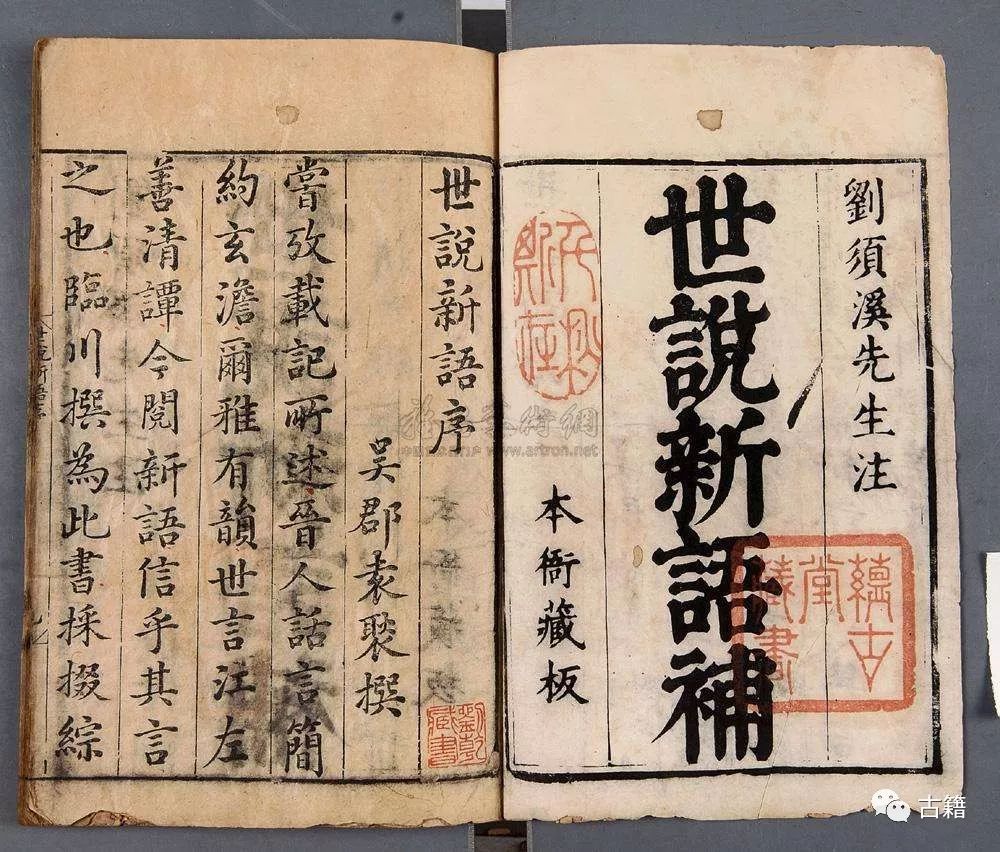 劉須溪先生注
世說新語補
本衙藏板
世說新語序
吳郡袁褧撰
嘗攷載記所述晉人話言簡
約玄澹爾雅有韻世言江左
善清譚今閱新語信乎其言
之也臨川撰為此書採掇綜
藏書
www.artron.net
古籍